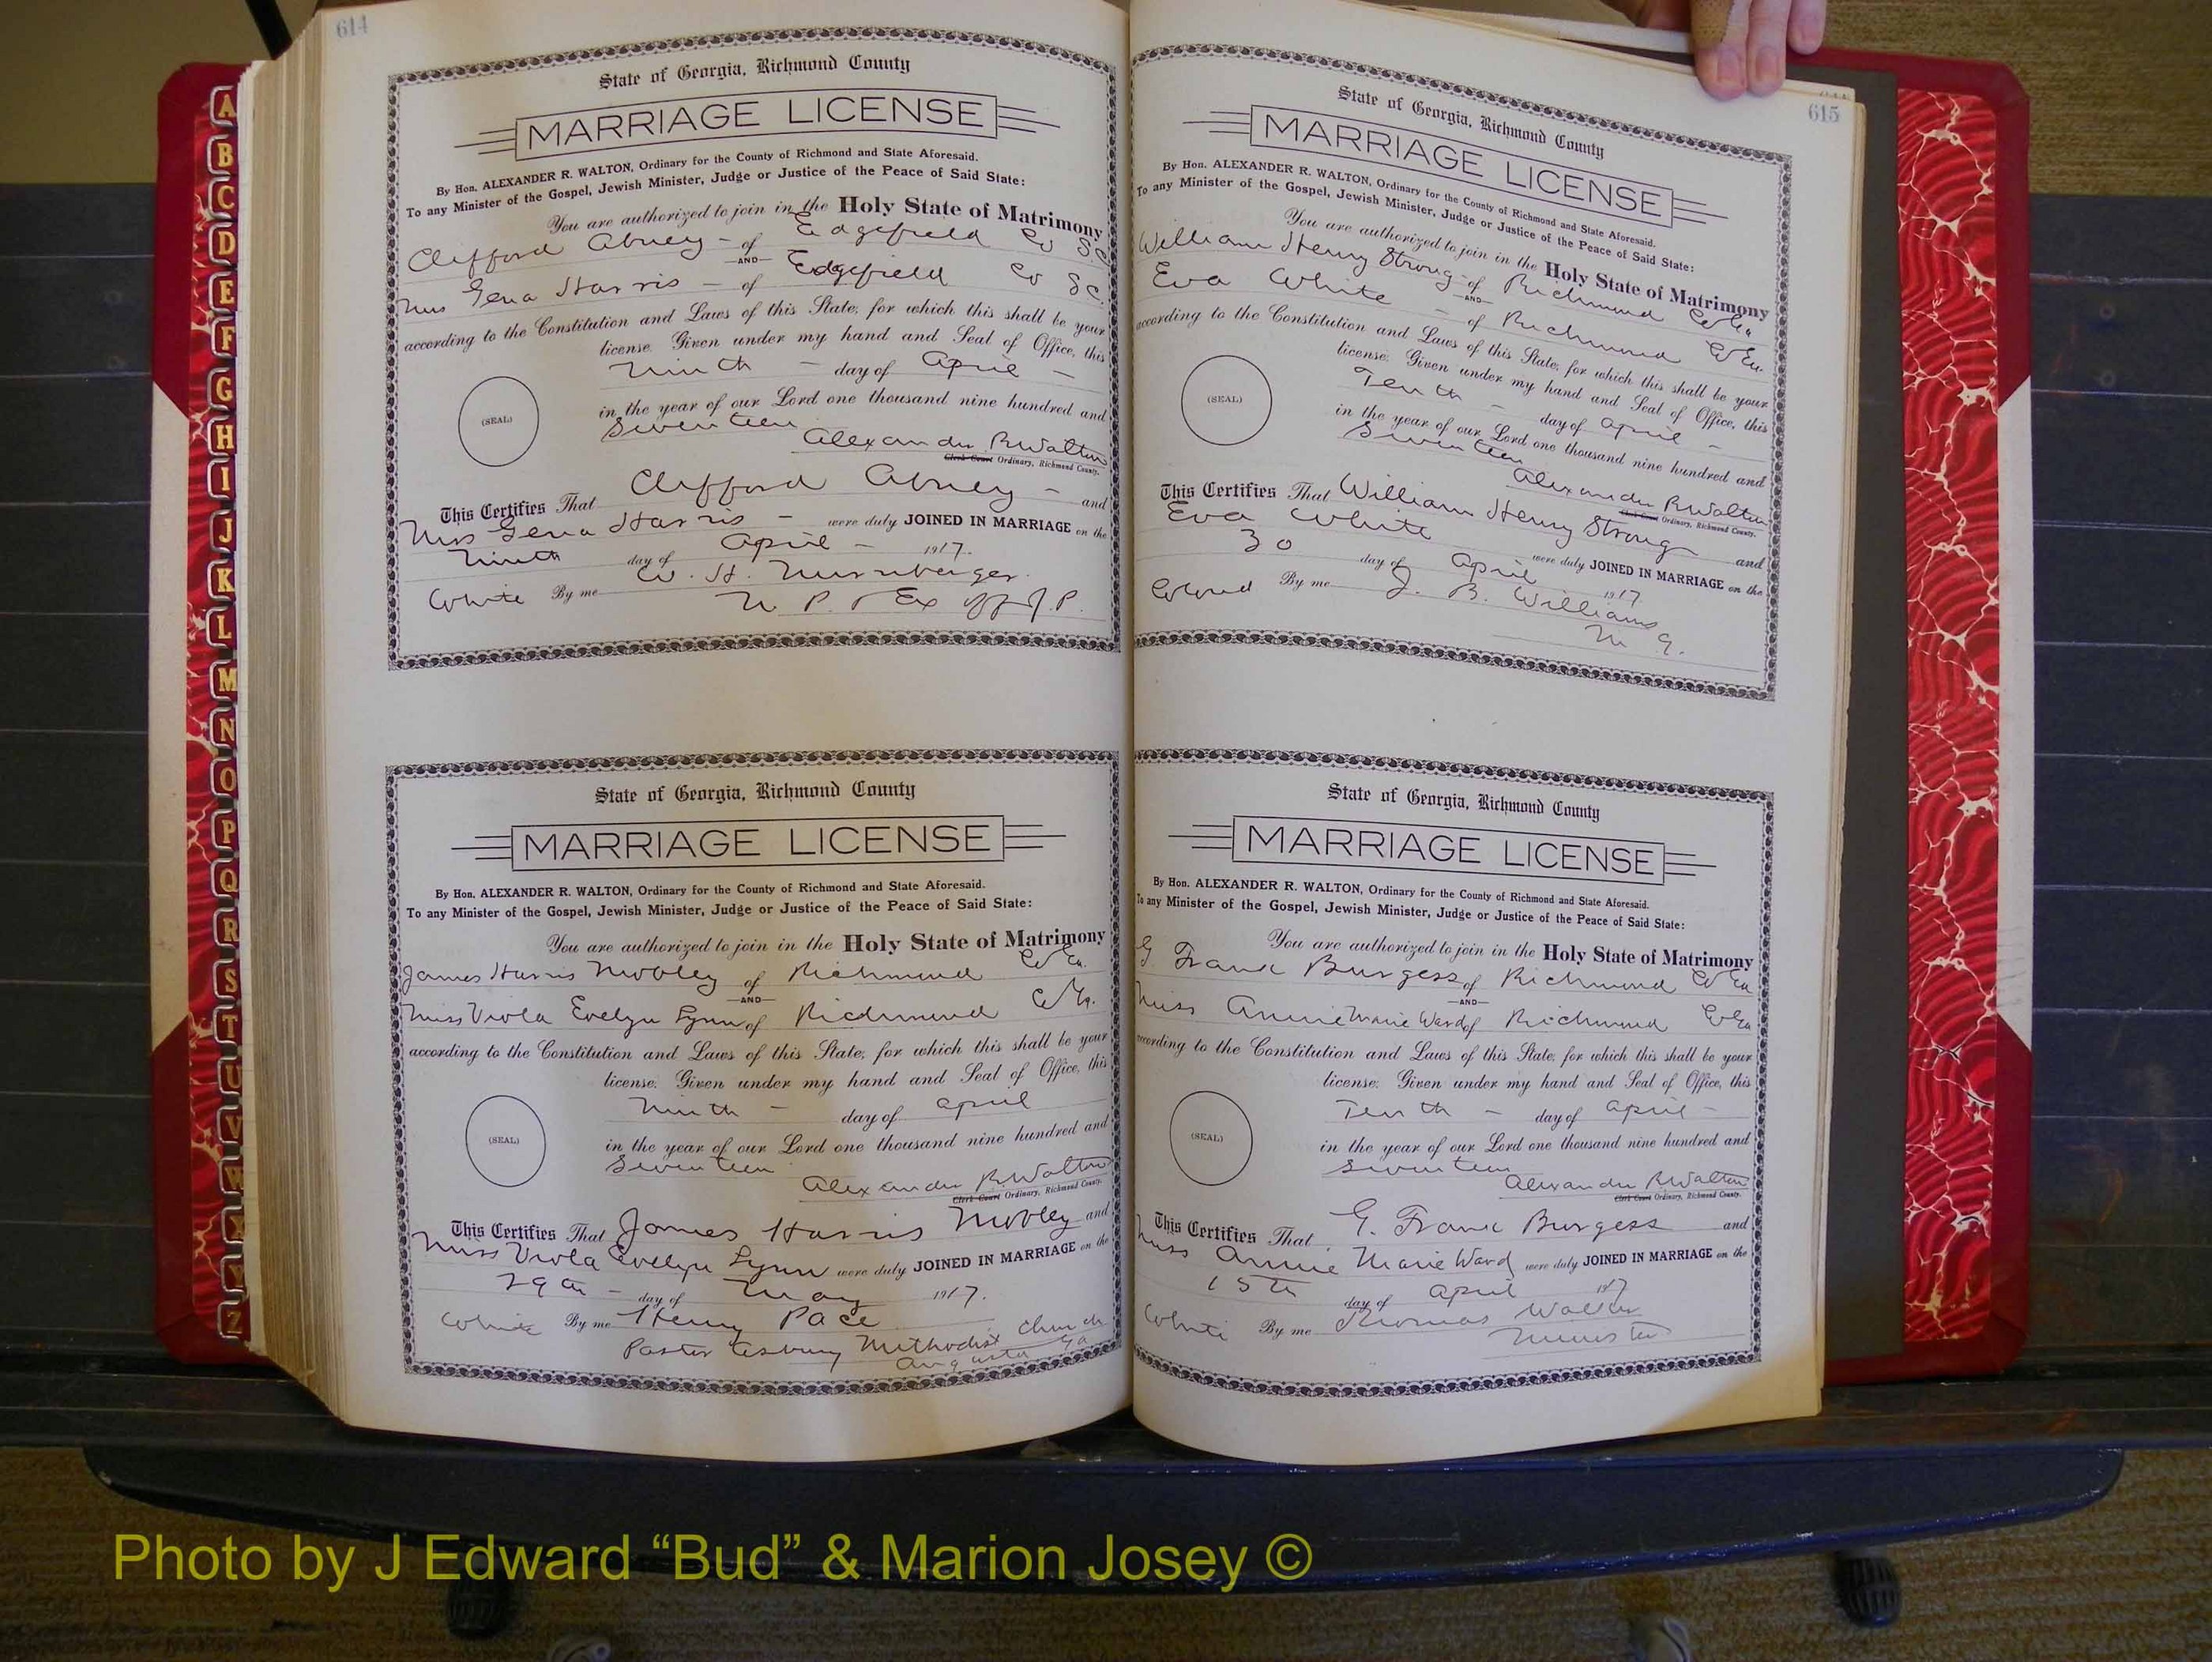 614
State of Georgia, Richmond County
MARRIAGE LICENSE
By Hon. ALEXANDER R. WALTON, Ordinary for the County of Richmond and State Aforesaid.
To any Minister of the Gospel, Jewish Minister, Judge or Justice of the Peace of Said State:
You are authorized to join in the Holy State of Matrimony
Clifford Abney - of Edgefield Co S.C.
AND
Miss Gena Harris - of Edgefield Co S.C.
according to the Constitution and Laws of this State, for which this shall be your
license. Given under my hand and Seal of Office, this
Ninth - day of April -
in the year of our Lord one thousand nine hundred and
Seventeen
Alexander R Walton
Clerk Court Ordinary, Richmond County.
(SEAL)
This Certifies That Clifford Abney - and
Miss Gena Harris - were duly JOINED IN MARRIAGE on the
Ninth day of April - 1917.
White By me W. H. Nurnberger
N. P. & Ex Off J. P.
State of Georgia, Richmond County
MARRIAGE LICENSE
By Hon. ALEXANDER R. WALTON, Ordinary for the County of Richmond and State Aforesaid.
To any Minister of the Gospel, Jewish Minister, Judge or Justice of the Peace of Said State:
You are authorized to join in the Holy State of Matrimony
James Harris Mobley of Richmond Co Ga.
AND
Miss Viola Evelyn Lynn of Richmond Co Ga.
according to the Constitution and Laws of this State, for which this shall be your
license. Given under my hand and Seal of Office, this
Ninth - day of April
in the year of our Lord one thousand nine hundred and
Seventeen
Alexander R. Walton
Clerk Court Ordinary, Richmond County.
(SEAL)
This Certifies That James Harris Mobley and
Miss Viola Evelyn Lynn were duly JOINED IN MARRIAGE on the
29th - day of May 1917.
White By me Henry Pace
Pastor Asbury Methodist Church
Augusta Ga
615
State of Georgia, Richmond County
MARRIAGE LICENSE
By Hon. ALEXANDER R. WALTON, Ordinary for the County of Richmond and State Aforesaid.
To any Minister of the Gospel, Jewish Minister, Judge or Justice of the Peace of Said State:
You are authorized to join in the Holy State of Matrimony
William Henry Strong - of Richmond Co Ga
AND
Eva White - of Richmond Co Ga.
according to the Constitution and Laws of this State, for which this shall be your
license. Given under my hand and Seal of Office, this
Tenth - day of April -
in the year of our Lord one thousand nine hundred and
Seventeen
Alexander R Walton
Clerk Court Ordinary, Richmond County.
(SEAL)
This Certifies That William Henry Strong and
Eva White were duly JOINED IN MARRIAGE on the
30 day of April 1917
Colored By me J. B. Williams
M G.
State of Georgia, Richmond County
MARRIAGE LICENSE
By Hon. ALEXANDER R. WALTON, Ordinary for the County of Richmond and State Aforesaid.
To any Minister of the Gospel, Jewish Minister, Judge or Justice of the Peace of Said State:
You are authorized to join in the Holy State of Matrimony
G. Frank Burgess of Richmond Co Ga
AND
Miss Annie Marie Ward of Richmond Co Ga
according to the Constitution and Laws of this State, for which this shall be your
license. Given under my hand and Seal of Office, this
Tenth - day of April -
in the year of our Lord one thousand nine hundred and
Seventeen
Alexander R Walton
Clerk Court Ordinary, Richmond County.
(SEAL)
This Certifies That G. Frank Burgess and
Miss Annie Marie Ward were duly JOINED IN MARRIAGE on the
15th day of April 1917
White By me Thomas Walker
Minister
A
B
C
D
E
F
G
H
I
J
K
L
M
N
O
P
Q
R
S
T
U
V
W
X
Y
Z
Photo by J Edward “Bud” & Marion Josey ©